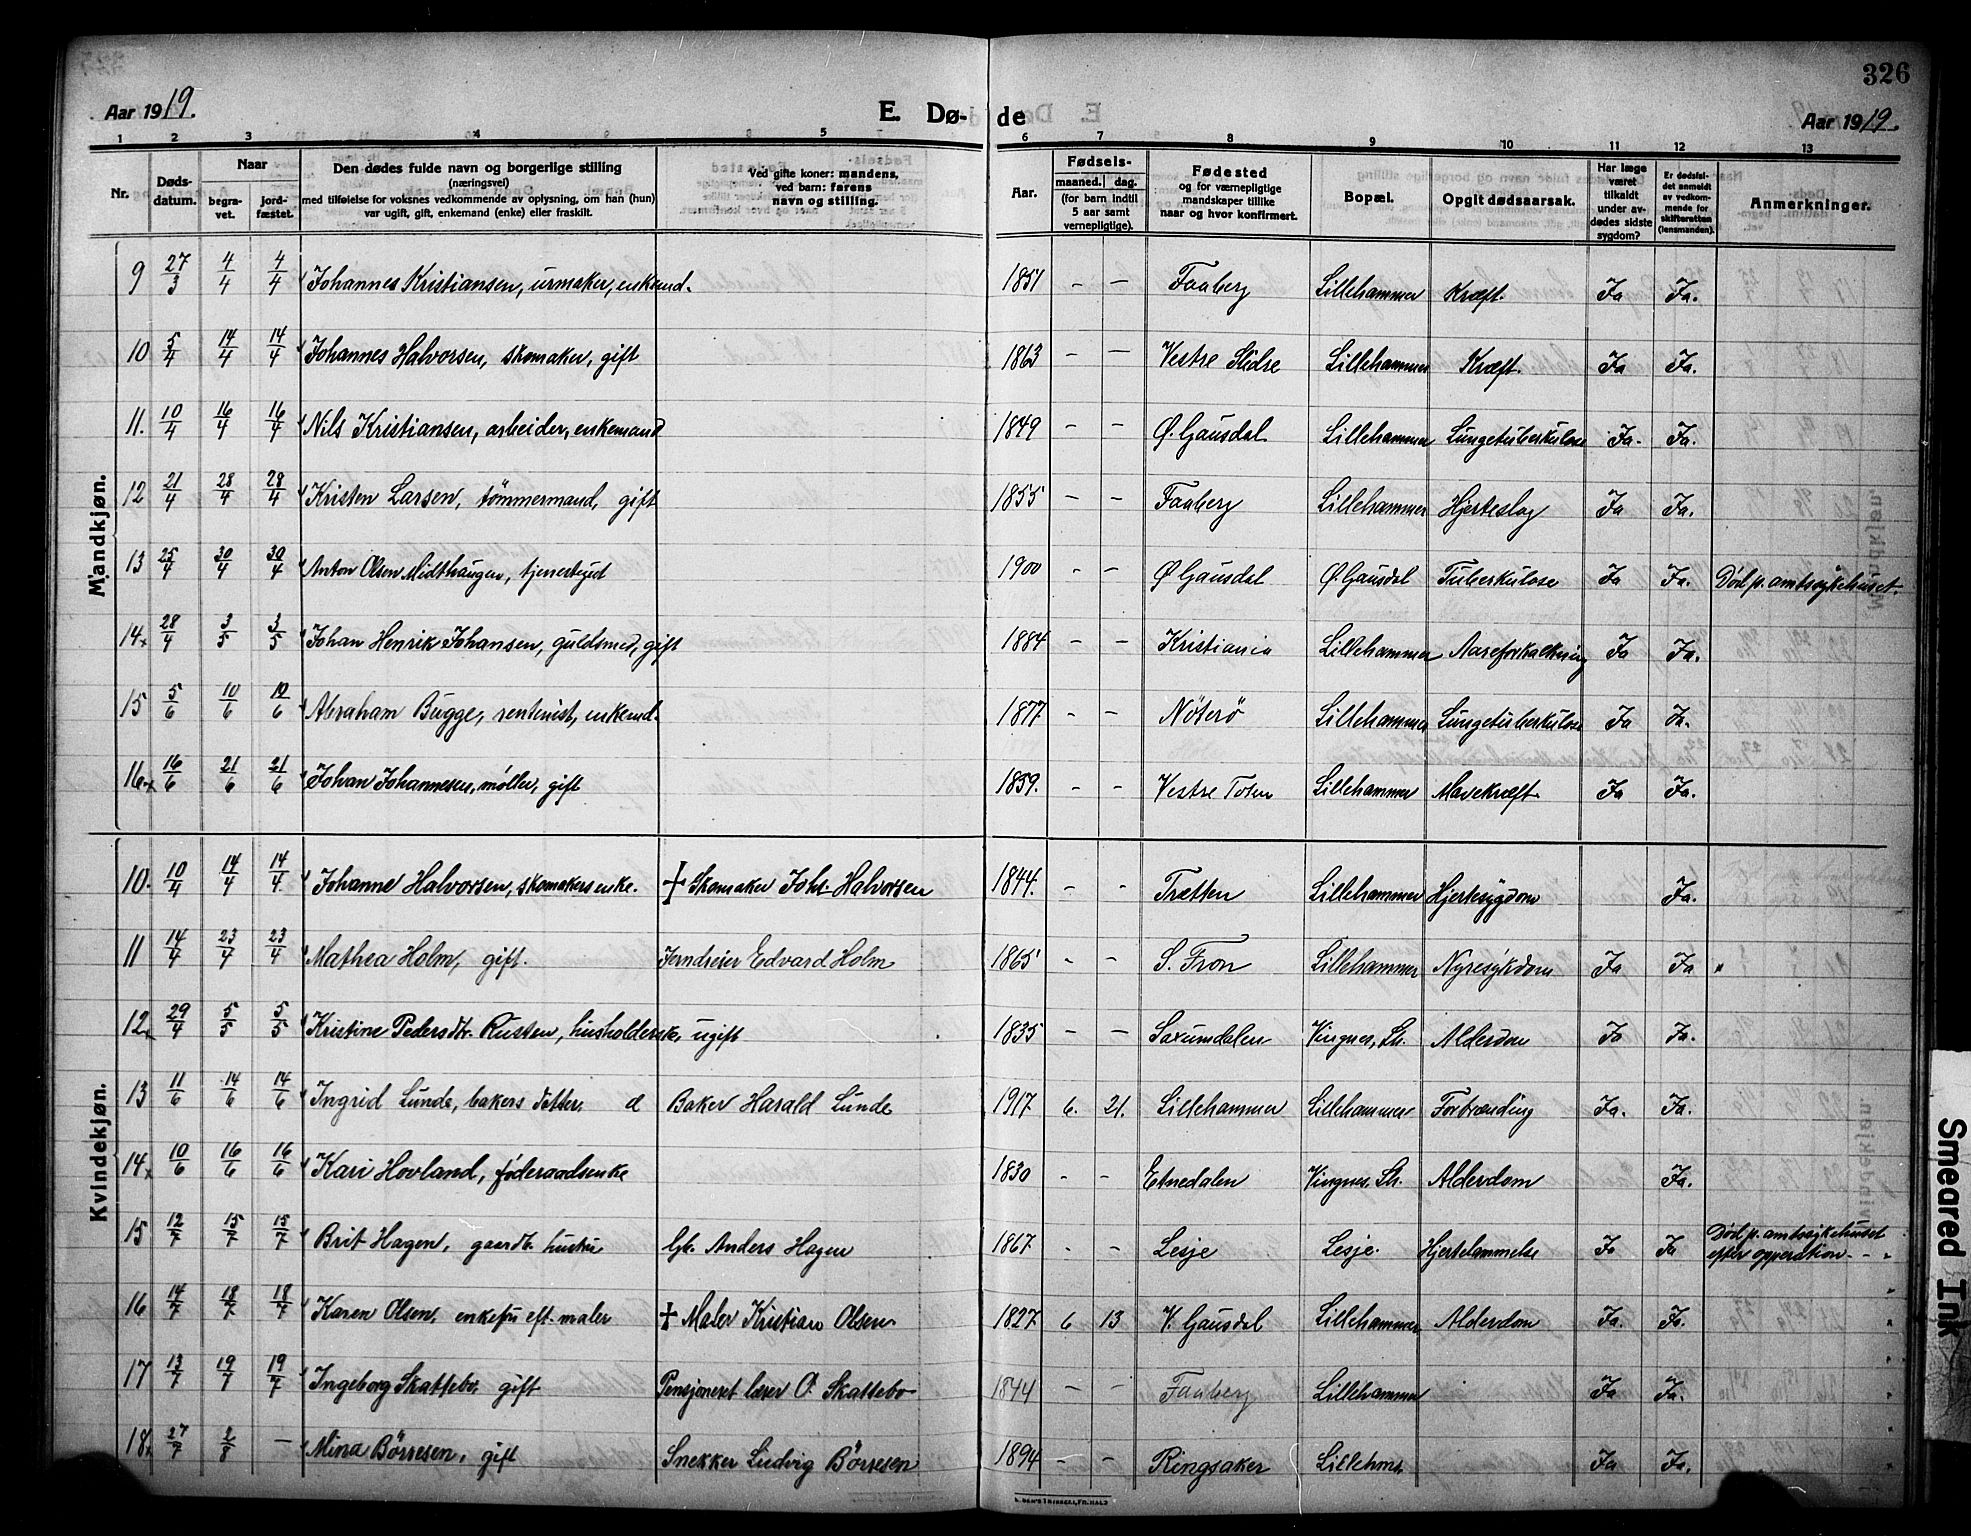 326
Aar 1919. E. Dø- de Aar 1919.
1 2 3 4 5 6 7 8 9 10 11 12 13
Nr. Døds-datum. Naar begra-vet. jord-fæstet. Den dødes fulde navn og borgerlige stilling (næringsvei) med tilføielse for voksnes vedkommende av oplysning, om han (hun) var ugift, gift, enkemand (enke) eller fraskilt. Ved gifte koner: mandens, ved barn: farens navn og stilling. Aar. Fødsels- maaned. dag. (for barn indtil 5 aar samt vernepligtige). Fødested og for værnepligtige mandskaper tillike naar og hvor konfirmert. Bopæl. Opgit dødsaarsak. Har læge været tilkaldt under av-dødes sidste sygdom? Er dødsfal-det anmeldt av vedkom-mende for skifteretten (lensmanden). Anmerkninger.
Mandkjøn.
9 27/3 4/4 4/4 Johannes Kristiansen, urmaker, enkemd. 1851 - - Faaberg Lillehammer Kræft. Ja Ja.
10 5/4 14/4 14/4 Johannes Halvorsen, skomaker, gift 1863 - - Vestre Slidre Lillehammer Kræft. Ja Ja.
11. 10/4 16/4 16/4 Nils Kristiansen, arbeider, enkemand 1849 - - Ø. Gausdal Lillehammer Lungetuberkulose Ja. Ja.
12 21/4 28/4 28/4 Kristen Larsen, tömmermand, gift 1855 - - Faaberg Lillehammer Hjerteslag Ja Ja.
13 25/4 30/4 30/4 Anton Olsen Midthaugen, tjenestegut 1900 - - Ø Gausdal Ø. Gausdal Tuberkulose Ja Ja. Död p. amtssykehuset.
14x 28/4 3/5 3/5 Johan Henrik Johansen, guldsmed, gift 1884 - - Kristiania Lillehammer Aareforkalkning Ja Ja.
15 5/6 10/6 10/6 Abraham Bugge, rentenist, enkemd. 1877 - - Nöterö Lillehammer Lungetuberkulose Ja Ja.
16x 16/6 21/6 21/6 Johan Johannesen, møller, gift 1859. - - Vestre Toten Lillehammer Mavekræft. Ja Ja.
Kvindekjøn.
10. 10/4 14/4 14/4. Johanne Halvorsen, skomakers enke. † Skomaker Johs. Halvorsen 1844. - - Trætten Lillehammer Hjertesygdom Ja.
11 14/4 23/4 23/4 Mathea Holm, gift. Jerndreier Edvard Holm 1865 - - S. Fron Lillehammer Nyresykdom Ja Ja
12x 29/4 5/5 5/5 Kristine Pedersdtr. Rusten, husholderske, ugift 1835 - - Saxumdalen Vingnes, Lh. Alderdom Ja Ja.
13 11/6 14/6 14/6 Ingrid Lunde, bakers datter. d Baker Harald Lunde 1917 6. 21. Lillehammer Lillehammer Forbrænding Ja. Ja.
14x 10/6 16/6 16/6 Kari Hovland, føderaadsenke 1830 - - Etnedalen Vingnes, Lh. Alderdom Ja.
15 12/7 15/7 15/7 Brit Hagen, gaardbr. hustru Gb. Anders Hagen 1867. - - Lesje Lesje. Hjertelammelse Ja Ja Död p. amtssykehuset
efter opperation
16 14/7 18/7 18/7 Karen Olsen, enkefru eft. maler † Maler Kristian Olsen. 1827. 6 13 V. Gausdal Lillehammer Alderdom Ja. Ja.
17 13/7 19/7 19/7 Ingeborg Skattebo, gift Pensjoneret lærer O. Skattebo 1844 - - Faaberg Lillehammer Ja Ja.
18x 27/7 2/8 - Mina Börresen, gift Snekker Ludvig Börresen 1894 - - Ringsaker Lillehmr. Ja Ja.
Smeared Ink